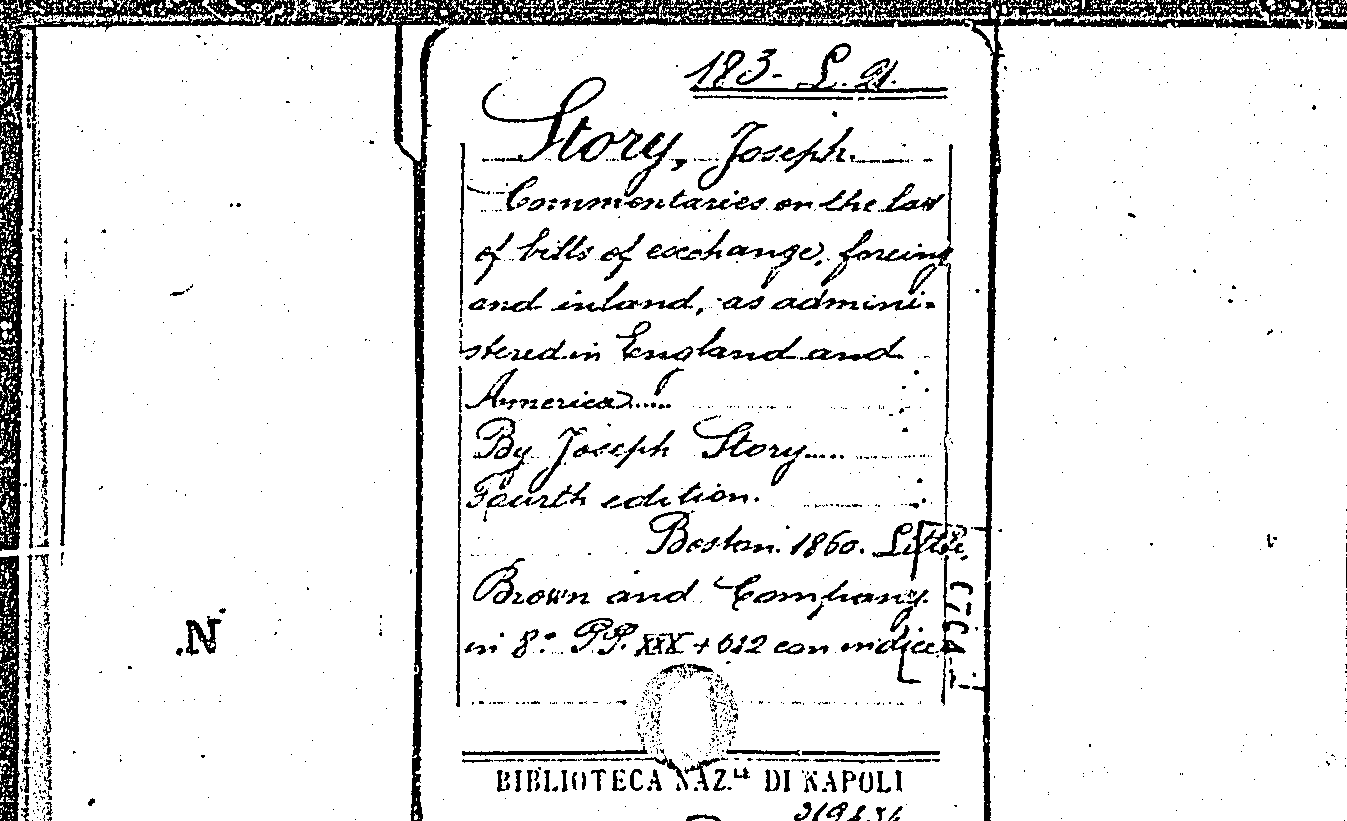 183- L. 21.
Story, Joseph.
Commentaries on the law
of bills of exchange, foreing
and inland, as admini-
stered in England and
America.....
By Joseph Story.....
Fourth edition.
Boston. 1860. Little,
Brown and Company.
in 8° PP. XXX + 612 con indice
.N
BIBLIOTECA NAZ.LE DI NAPOLI